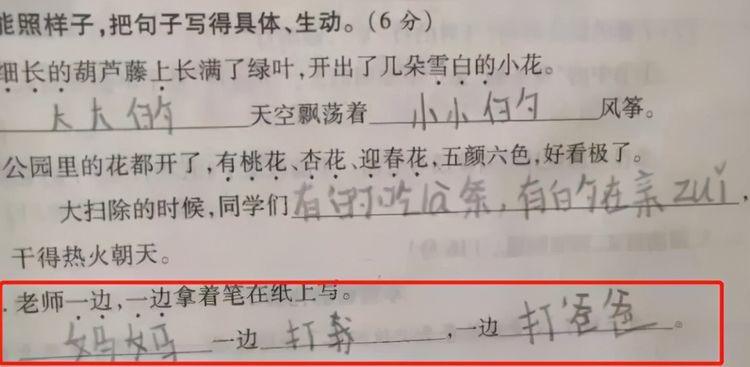 能照样子,把句子写得具体、生动。(6 分)
细长的葫芦藤上长满了绿叶,开出了几朵雪白的小花。
大大的天空飘荡着小小的风筝。
公园里的花都开了,有桃花、杏花、迎春花,五颜六色,好看极了。
大扫除的时候,同学们有的吃条,有的在亲zuǐ,
干得热火朝天。
. 老师一边,一边拿着笔在纸上写。
妈妈一边打我,一边打爸爸。